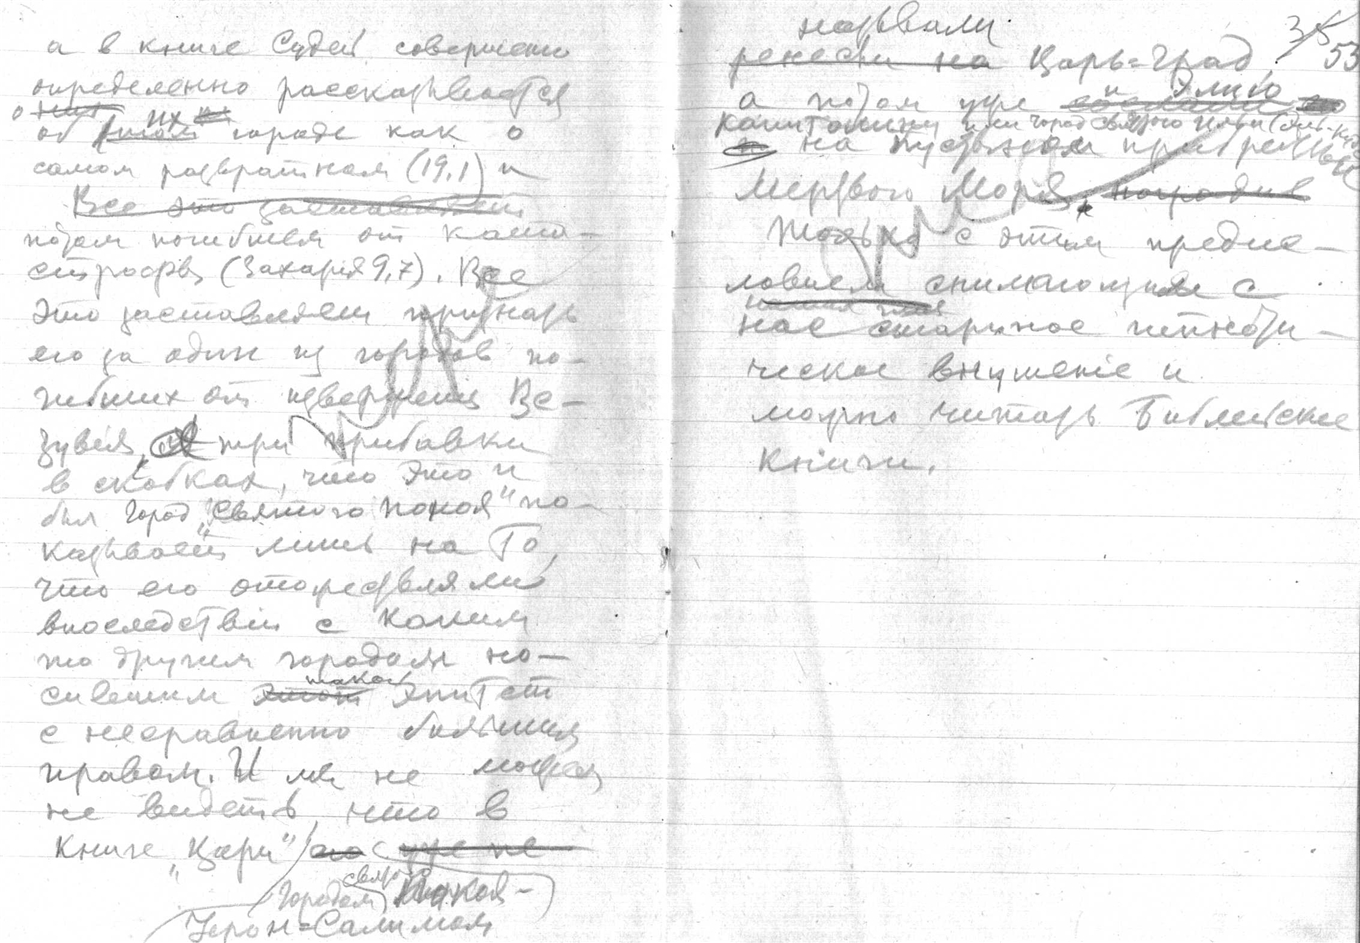 а в книге Судей совершенно
определенно рассказывается
об их городе как о
самом развратном (19,1) и
Все это заставляет
потом погибшем от ката-
строфы (Захарія 9,7). Все
это заставляет признать
его за один из городов по-
гибших от извержения Ве-
зувія, а три прибавки
в скобках, что это и
был город „Святого покоя" по-
казывает лишь на то,
что его отожествляли
впоследствіи с каким
то другим городом но-
сившим такой эпитет
с несравненно большим
правом. И мы не можем
не видеть, что в
книге „Цари"
Городом святого покоя-
Герон=Салимом
назвали
35
53
Царь=Град
а потом уже и Элию
Капитолину или город святого
на пустынном прибрежьи
Мертвого Моря,
Только с этим предис-
ловием снимающим с
нас старинное гипноти-
ческое внушеніе и
можно читать Библейские
книги.